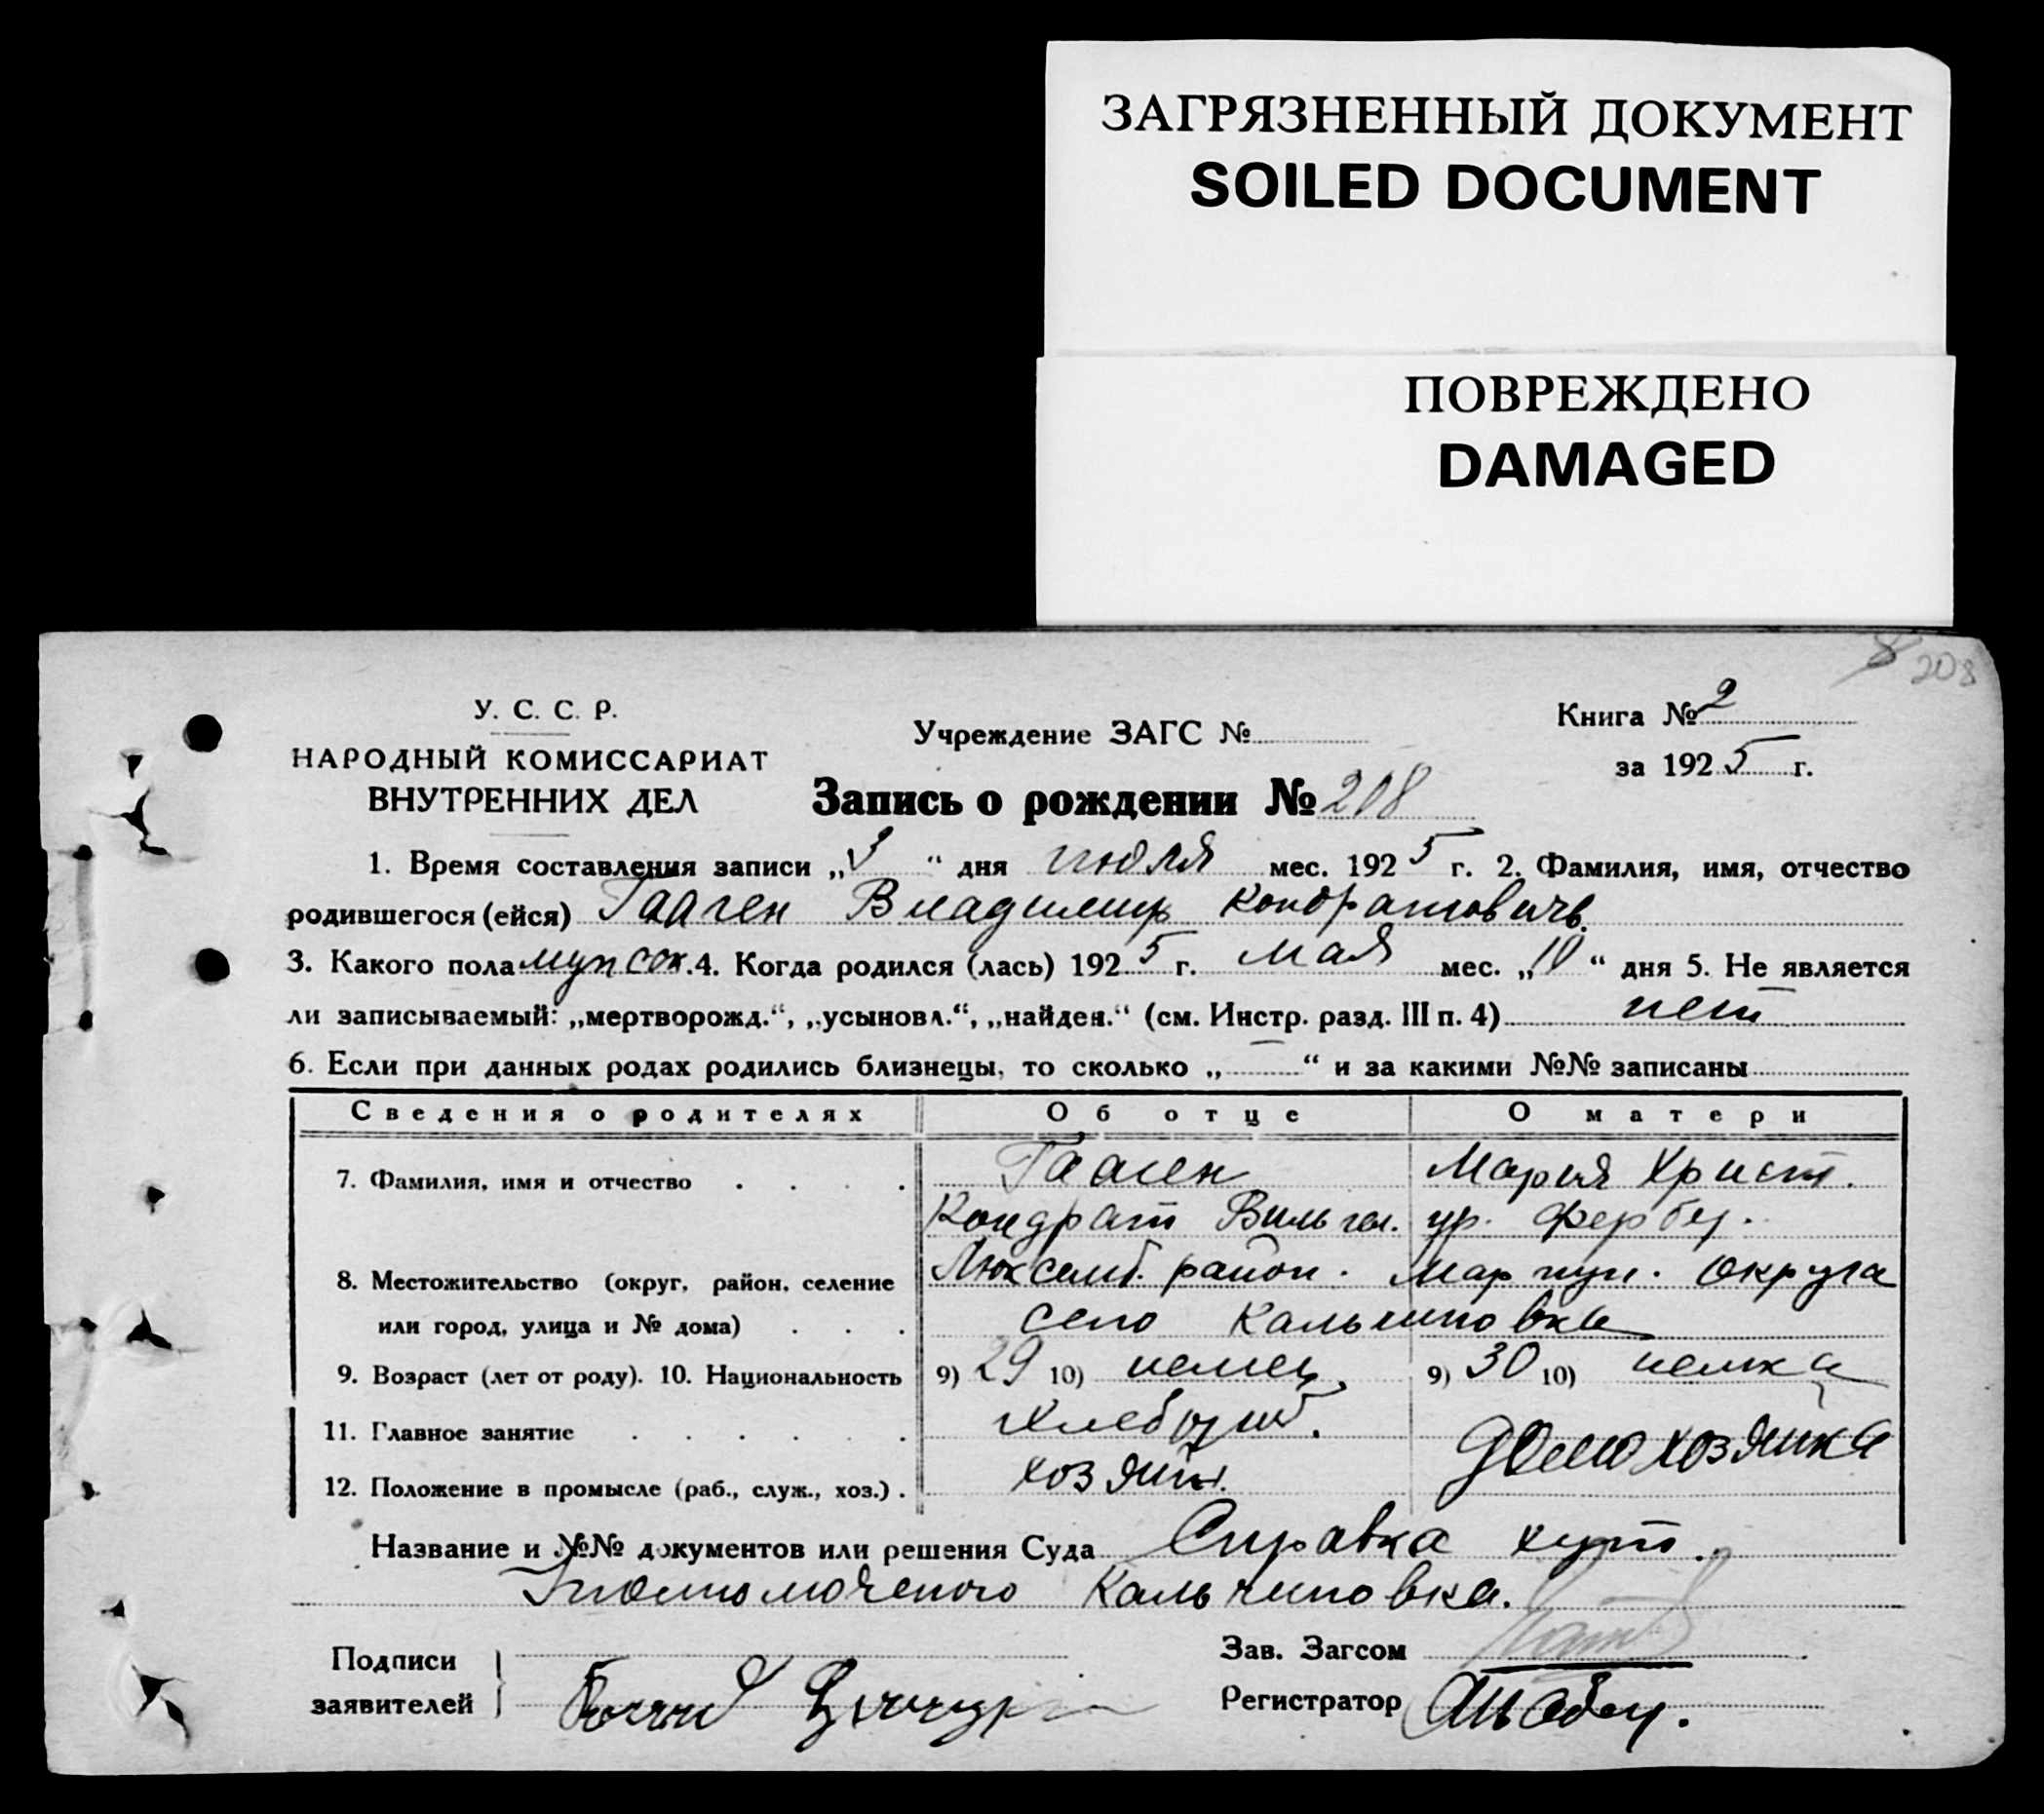 ЗАГРЯЗНЕННЫЙ ДОКУМЕНТ
SOILED DOCUMENT
ПОВРЕЖДЕНО
DAMAGED
208
У. С. С. Р.
НАРОДНЫЙ КОМИССАРИАТ
ВНУТРЕННИХ ДЕЛ
Учреждение ЗАГС №
Книга № 2
за 1925 г.
Запись о рождении № 208
1. Время составления записи „3“ дня июля мес. 1925 г. 2. Фамилия, имя, отчество
родившегося (ейся) Гааген Владимир Кондратовичъ.
3. Какого пола мужск. 4. Когда родился (лась) 1925 г. мая мес. „10“ дня 5. Не является
ли записываемый: „мертворожд.“, „усыновл.“, „найден.“ (см. Инстр. разд. III п. 4) нет
6. Если при данных родах родились близнецы, то сколько „—“ и за какими №№ записаны
Сведения о родителях Об отце О матери
7. Фамилия, имя и отчество Гааген Мария Христ.
Кондрат Вильгел. ур. Фербер.
8. Местожительство (округ, район, селение Люксемб. район. Мариуп. округа
или город, улица и № дома) село Кальчиновка
9. Возраст (лет от роду). 10. Национальность 9) 29 10) немец 9) 30 10) немка
11. Главное занятие хлебороб. домохозяйка
12. Положение в промысле (раб., служ., хоз.) хозяин.
Название и №№ документов или решения Суда Справка хут.
Уполномоченого Кальчиновка.
Подписи
заявителей
Зав. Загсом
Регистратор